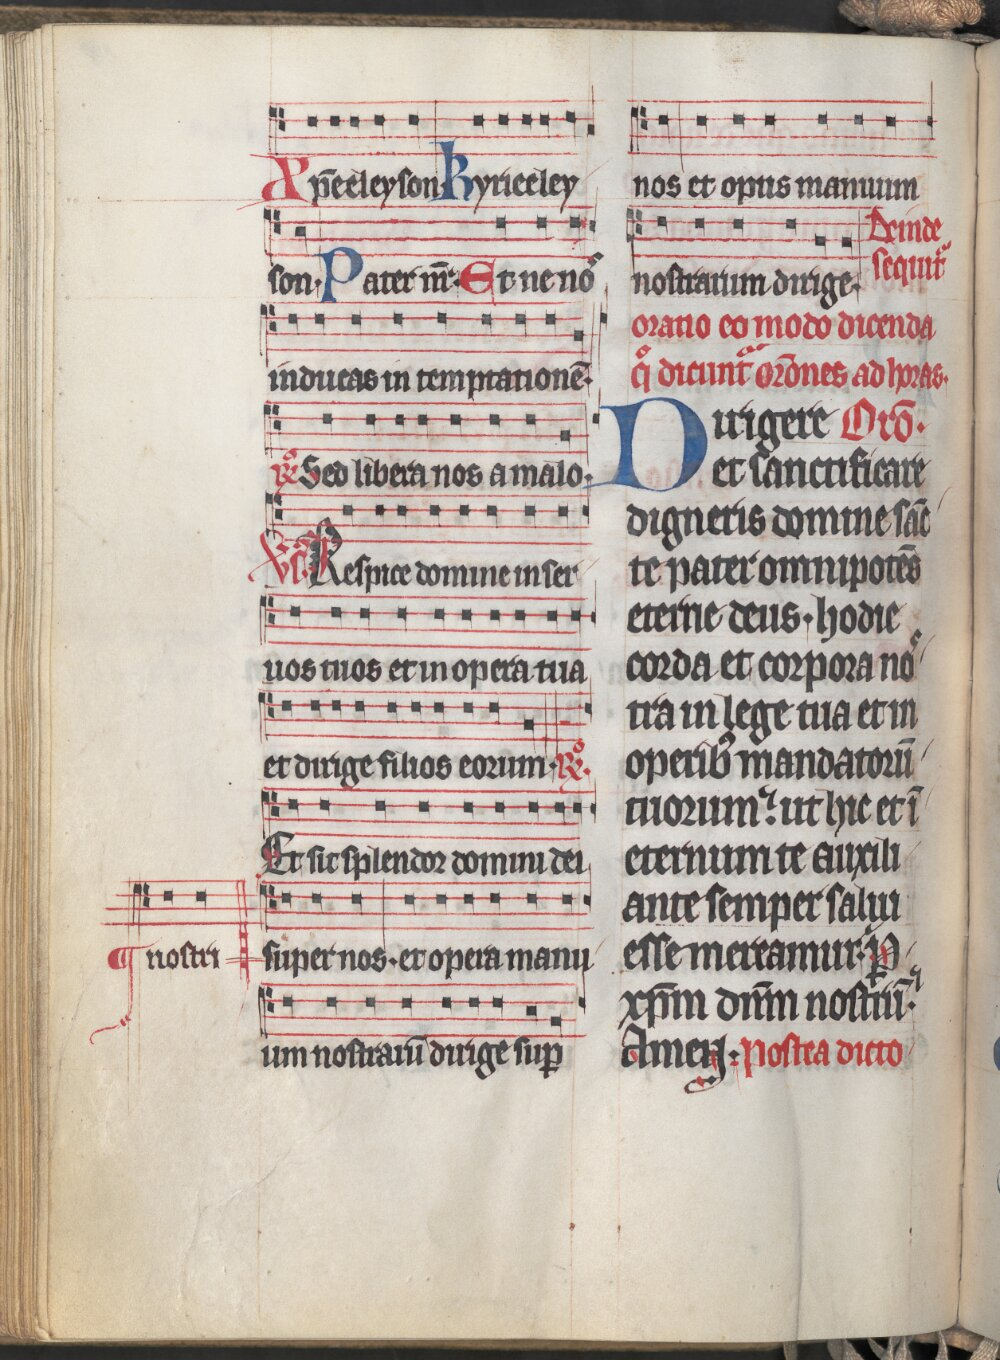 Xp̄eeleyson Kyrieeley
son· Pater nr̄· Et ne nos
inducas in temptationē·
R̷o Sed libera nos a malo·
Vs̷ Respice domine in ser
uos tuos et in opera tua
et dirige filios eorum· R̷o·
Et sit splendor domini dei
¶ nostri
super nos· et opera manu
um nostrarū dirige suꝑ
nos et opus manuum
nostrarum dirige·
Deinde
sequit᷑
oratio eo modo dicenda
qͦ dicunt᷑ orōnes ad horas·
Dirigere Orō·
et sanctificare
digneris domine sāc
te pater omnipotēs
eterne deus· hodie
corda et corpora nos
tra in lege tua et in
operibꝫ mandatorū
tuorum· ut hic et ī
eternum te auxili
ante semper salui
esse mereamur· ꝑ
xp̄m dn̄m nostrū·
Amen· Postea dicto